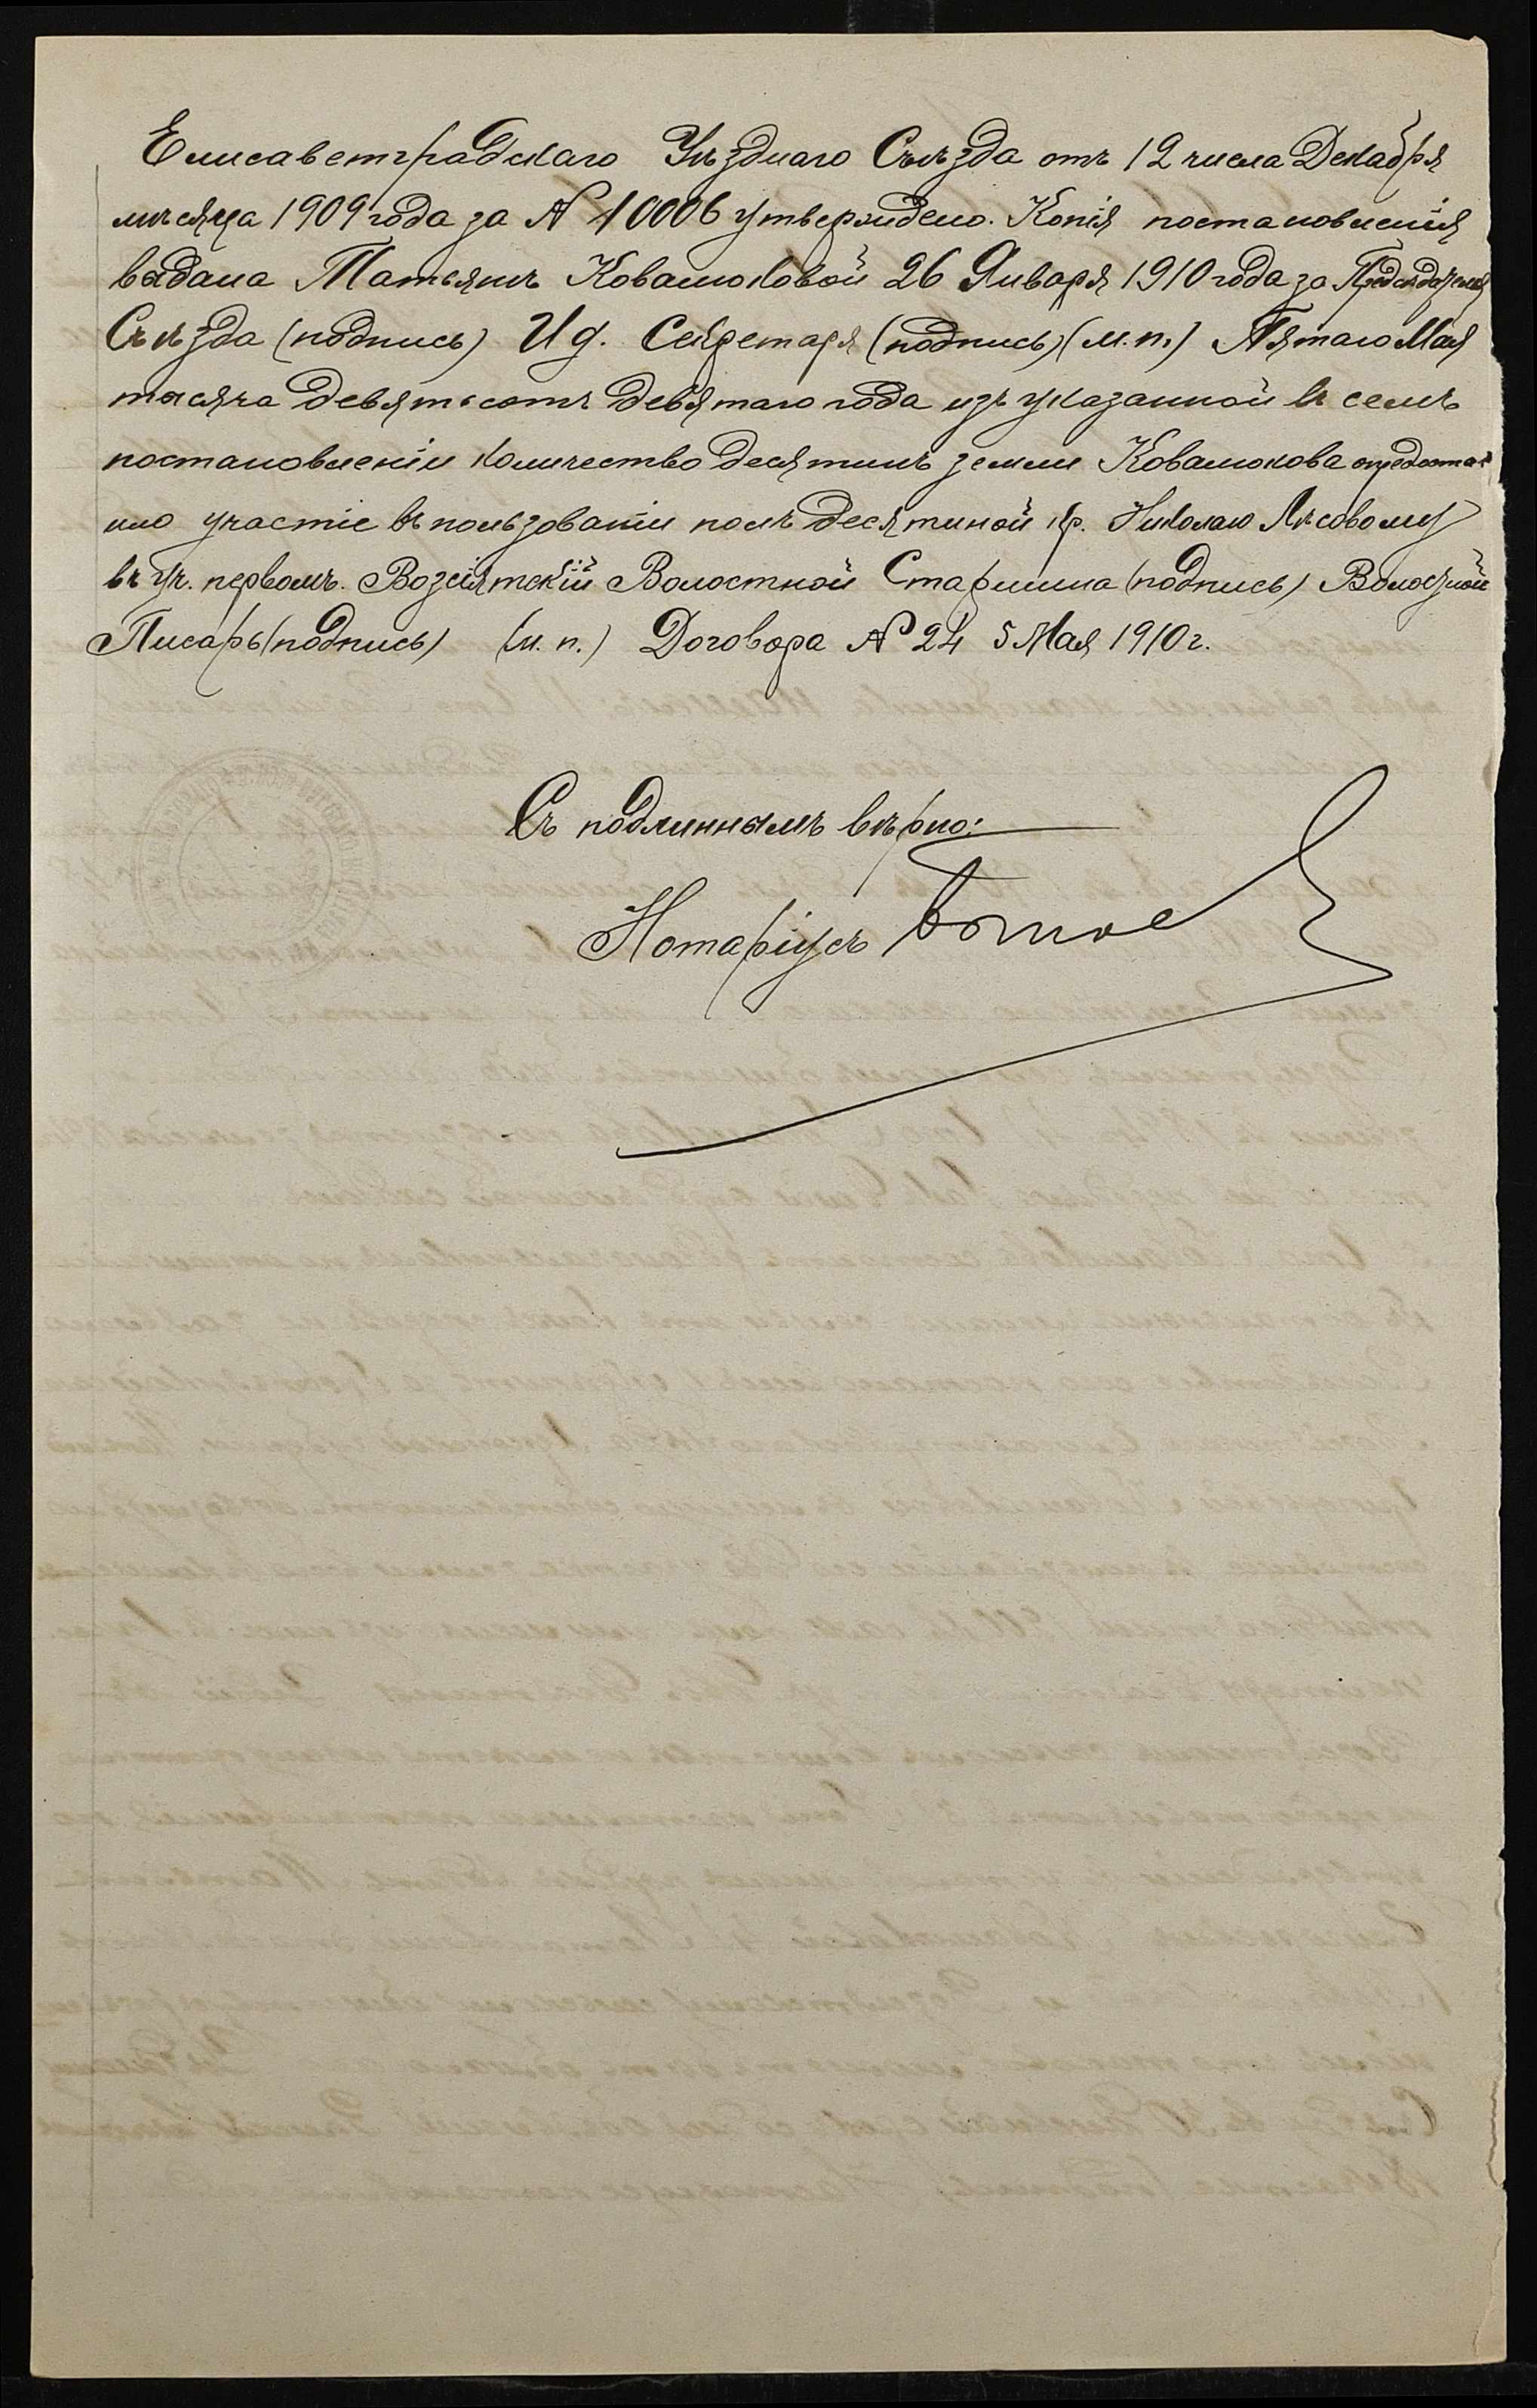 Елисаветградскаго Уѣзднаго Съѣзда отъ 12 числа Декабря
мѣсяца 1909 года за № 10006 утверждено. Копія постановленія
выдана Татьянѣ Ковалюковой 26 Января 1910 года за Предсѣдателя
Съѣзда (подпись) И д. Секретаря (подпись) (м.п.) Пятаго Мая
тысяча девятьсотъ девятаго года изъ указанной въ семъ
постановленіи количество десятинъ земли Ковалюкова
но участіе въ пользованіи полъ десятиной кр. Николаю Лѣсовому
въ уч. первомъ. Возсіятскій Волостной Старшина (подпись) Волостной
Писарь (подпись) (м. п.) Договора № 24 5 Мая 1910 г.
Съ подлиннымъ вѣрно:
Нотаріусъ